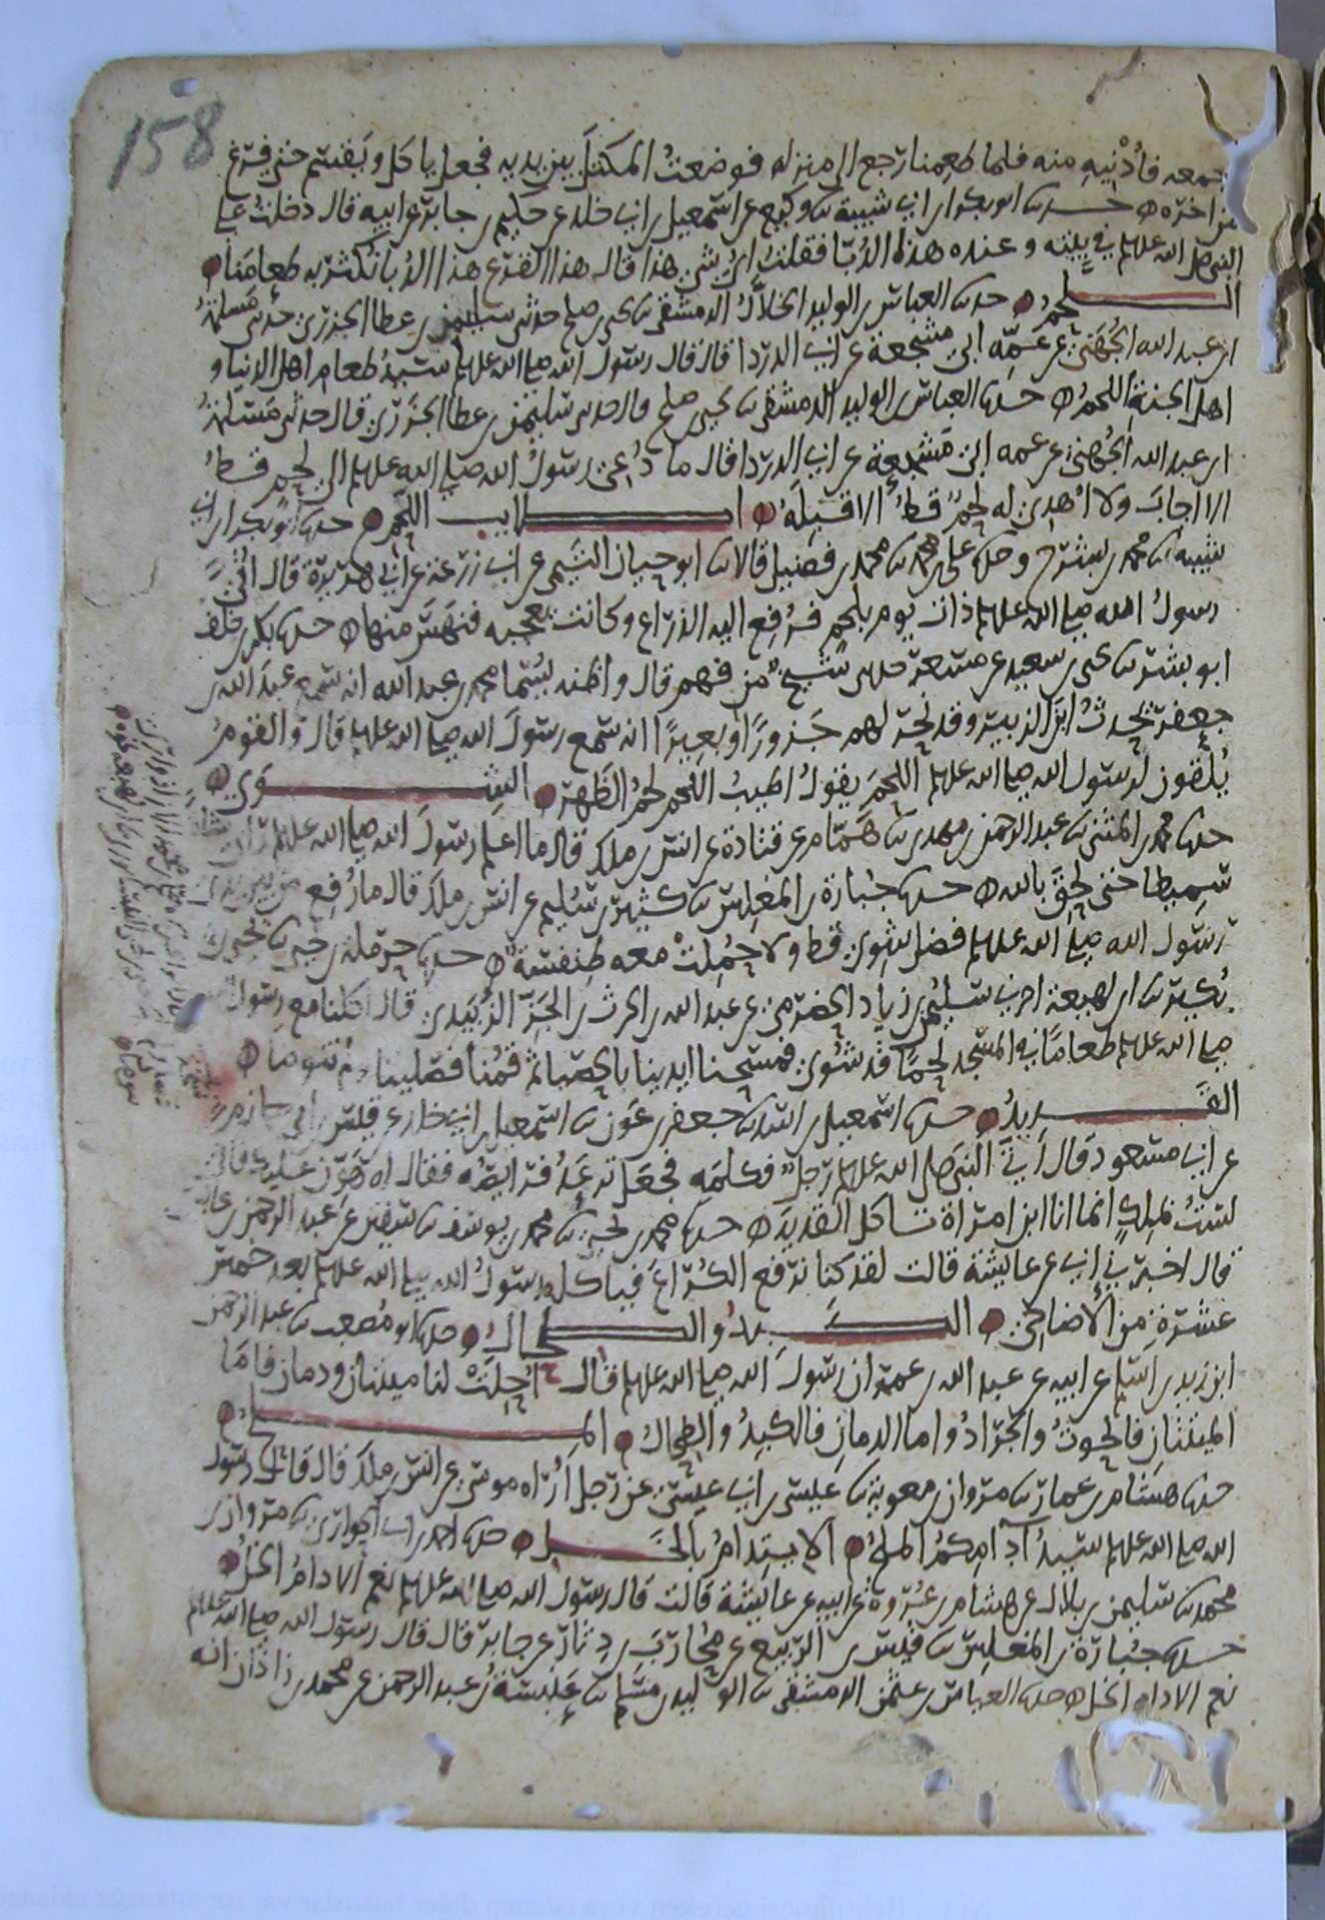 158
اجمعه فأدنيه منه فلما طعمنا رجع الى منزله فوضعتُ المكتل بين يديه فجعل ياكل ويقسم حتى فرغ
من اخره حدثنا ابو بكر ابن ابي شيبة ثنا وكيع عن اسمعيل بن ابي خلد عن حكيم بن جابر عن ابيه قال دخلت على
النبي صلى الله عليه وسلم في بيته وعنده هذا الدُبّا فقلتُ ايُّ شيٍ هذا قال هذا القرع هذا الدُبا نكثر به طعامنا
اللحمُ حدثنا العباس بن الوليد الخلالُ الدمشقي ثنا يحيى بن صلح حدثني سليمن بن عطا الجزري حدثني مسلمةُ
ابن عبد الله الجُهَني عن عمّه ابي مشجعة عن ابي الدردا قال قال رسول الله صلى الله عليه وسلم سيدُ طعام اهل الدنيا و
اهل الجنة اللحمُ حدثنا العباس بن الوليد الدمشقي ثنا يحيى بن صلح قال حدثني سليمن بن عطا الجزري قال حدثني مسلمةُ
ابن عبد الله الجُهني عن عمه ابي مشجعة عن ابي الدردا قال ما دُعي رسولُ الله صلى الله عليه وسلم الى لحم قطُ
الا اجابَ ولا اُهدي له لحمٌ قطُ الا قبلَه اطايب اللحم حدثنا ابو بكر ابن ابي
شيبه ثنا محمد بن بشر ح وحدثنا علي بن محمد ثنا محمد بن فضيل قالا ثنا ابو حيان التيمي عن ابي زرعة عن ابي هريرة قال اُتيَ
رسولُ الله صلى الله عليه وسلم ذات يوم بلحمٍ فرُفع اليه الذراع وكانت تعجبه فنهسَ منها حدثنا بكر بن خلف
ابو بشر ثنا يحيى بن سعيد عن مسعر حدثني شيخٌ من فهم قال واظنه يُسَمّا محمد بن عبد الله انه سمع عبد الله بن
جعفر يُحدثُ ابنَ الزبير وقد نحر لهم جَزورًا او بعيرًا انه سمع رسولَ الله صلى الله عليه وسلم قال والقومُ
يُلقون لرسول الله صلى الله عليه وسلم اللحمَ يقولُ اطيبُ اللحم لحمُ الظهر الشوي
حدثنا محمد بن المثنى ثنا عبد الرحمن بن مهدي ثنا همّام عن قتادة عن انس بن ملك قال ما اعلم رسولَ الله صلى الله عليه وسلم راى شاة
سميطا حتى لحقَ بالله حدثنا جُبارة بن المغلس ثنا كثير بن سُليم عن انس بن ملك قال ما رُفع من بين يدي
رسول الله صلى الله عليه وسلم فضل شوي قط ولا حُملتْ معه طنفسة حدثنا حرملة بن يحيى ثنا يحيى بن
بُكير ثنا ابن لهيعة اخبرني سليمن بن زياد الحضرمي عن عبد الله بن الحرث بن الجَزء الزُبَيدي قال اكلنا مع رسول
صلى الله عليه وسلم طعامًا في المسجد لحمًا قد شُوي فمسحنا ايدينا بالحصبا ثم قُمنا فصلينا ولم نتوضا
القديدُ حدثنا اسمعيل بن اسد ثنا جعفر بن عون ثنا اسمعيل بن ابي خلد عن قيس بن ابي حازم
عن ابي مسعود قال اَتى النبيَ صلى الله عليه وسلم رجلٌ فكلمه فجعل تُرعَدُ فرايصُه فقال له هَوّن عليك فاني
لستُ بملكٍ انما انا ابن امراة تاكل القديد حدثنا محمد بن يحيى ثنا محمد بن يوسف ثنا سفين عن عبد الرحمن بن عابس
قال اخبرني ابي عن عايشة قالت لقد كنا نرفع الكُراعَ فياكله رسولُ الله صلى الله عليه وسلم بعد خمس
عشرة من الاضاحي الكبدُ والطحالُ حدثنا ابو مُصعب ثنا عبد الرحمن
ابن زيد بن اسلم عن ابيه عن عبد الله بن عمر ان رسولَ الله صلى الله عليه وسلم قال اُحِلَتْ لنا ميتتان ودمان فاما
الميتتانِ فالحوتُ والجرادُ واما الدمانِ فالكبدُ والطحالُ الملح
حدثنا هشام بن عمار ثنا مروان بن معوية ثنا عيسى بن ابي عيسى عن رجل اُراه موسى عن انس بن ملك قال قال رسول
الله صلى الله عليه وسلم سيدُ اِدامكمُ الملحُ الايتدامُ بالخل حدثنا احمد بن ابي الحواري ثنا مروان بن
محمد ثنا سليمن بن بلال عن هشام بن عُروة عن ابيه عن عايشة قالت قال رسول الله صلى الله عليه وسلم نعم الادامُ الخلُ
حدثنا جُبارة بن المغلس ثنا قيس بن الربيع عن مُحارب بن دثار عن جابر قال قال رسول الله صلى الله عليه وسلم
نعم الادام الخل حدثنا العباس بن عثمن الدمشقي ثنا الوليد بن مسلم ثنا عنبسة بن عبد الرحمن عن محمد بن زاذان انه